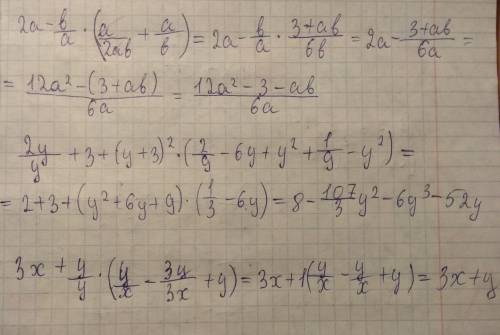 2a - b/a · (a/2ab + a/b) = 2a - b/a · 3+ab/6b = 2a - 3+ab/6a =
= 12a² - (3+ab)/6a = 12a² - 3 - ab/6a
2y/y + 3 + (y+3)² · (2/9 - 6y + y² + 1/9 - y²) =
= 2+3+(y²+6y+9) · (1/3 - 6y) = 8 - 107/3 y² - 6y³ - 52y
3x + y/y · (y/x - 3y/3x + y) = 3x+1(y/x - y/x + y) = 3x+y